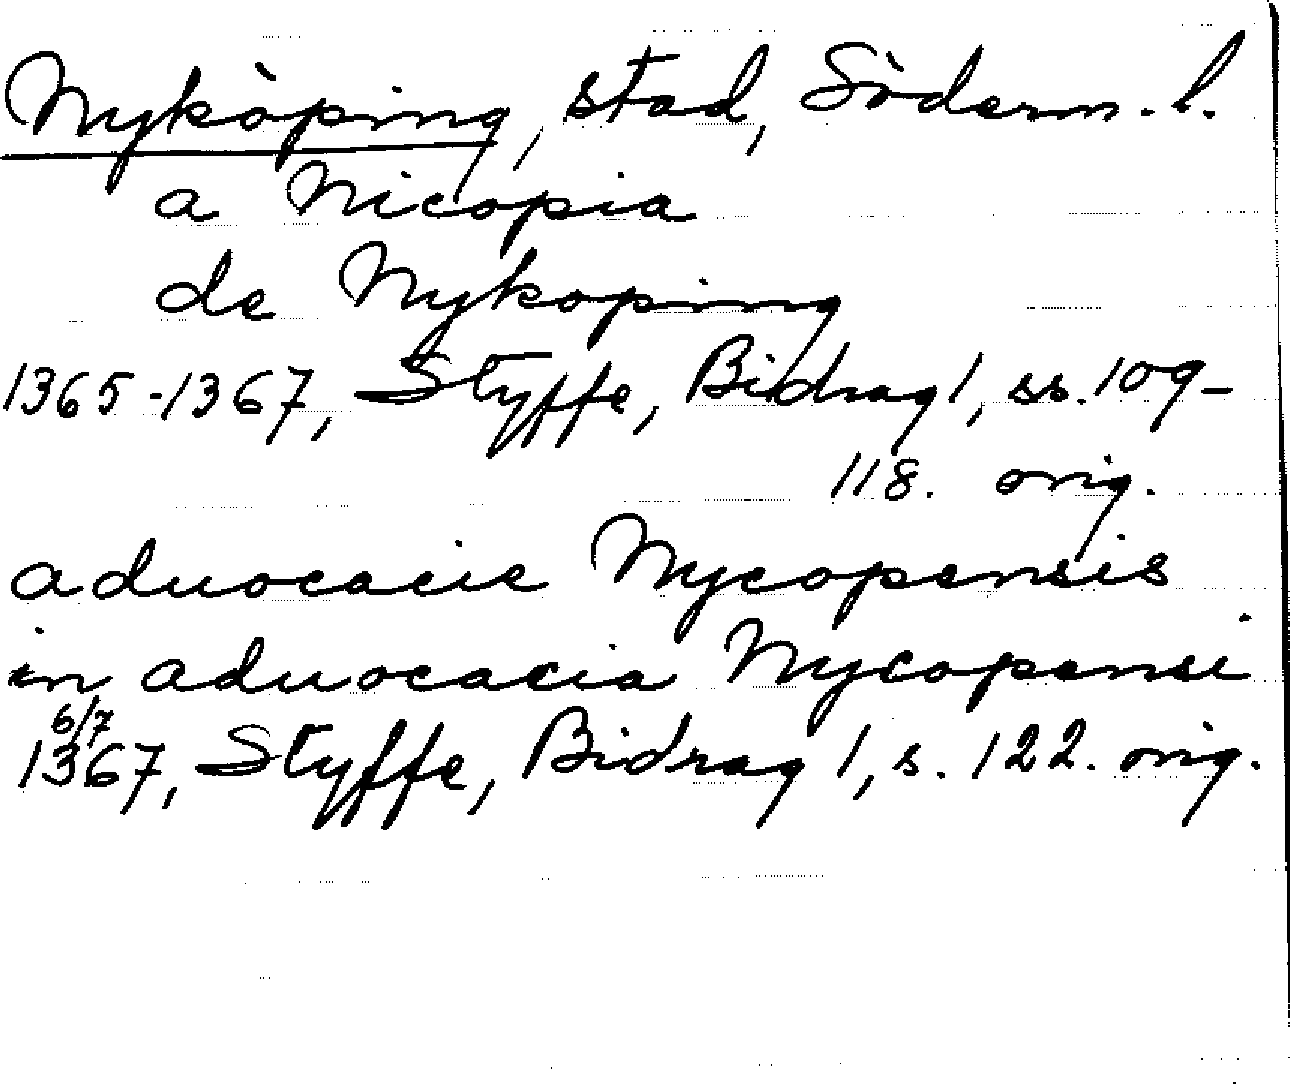 Nyköping, stad, Söderm. l.
a Nicopia
de Nykoping
1365-1367, Styffe, Bidrag 1, ss. 109-
118. orig.
aduocacie Nycopensis
in aduocacia Nycopensi
6/7
1367, Styffe, Bidrag 1, s. 122. orig.